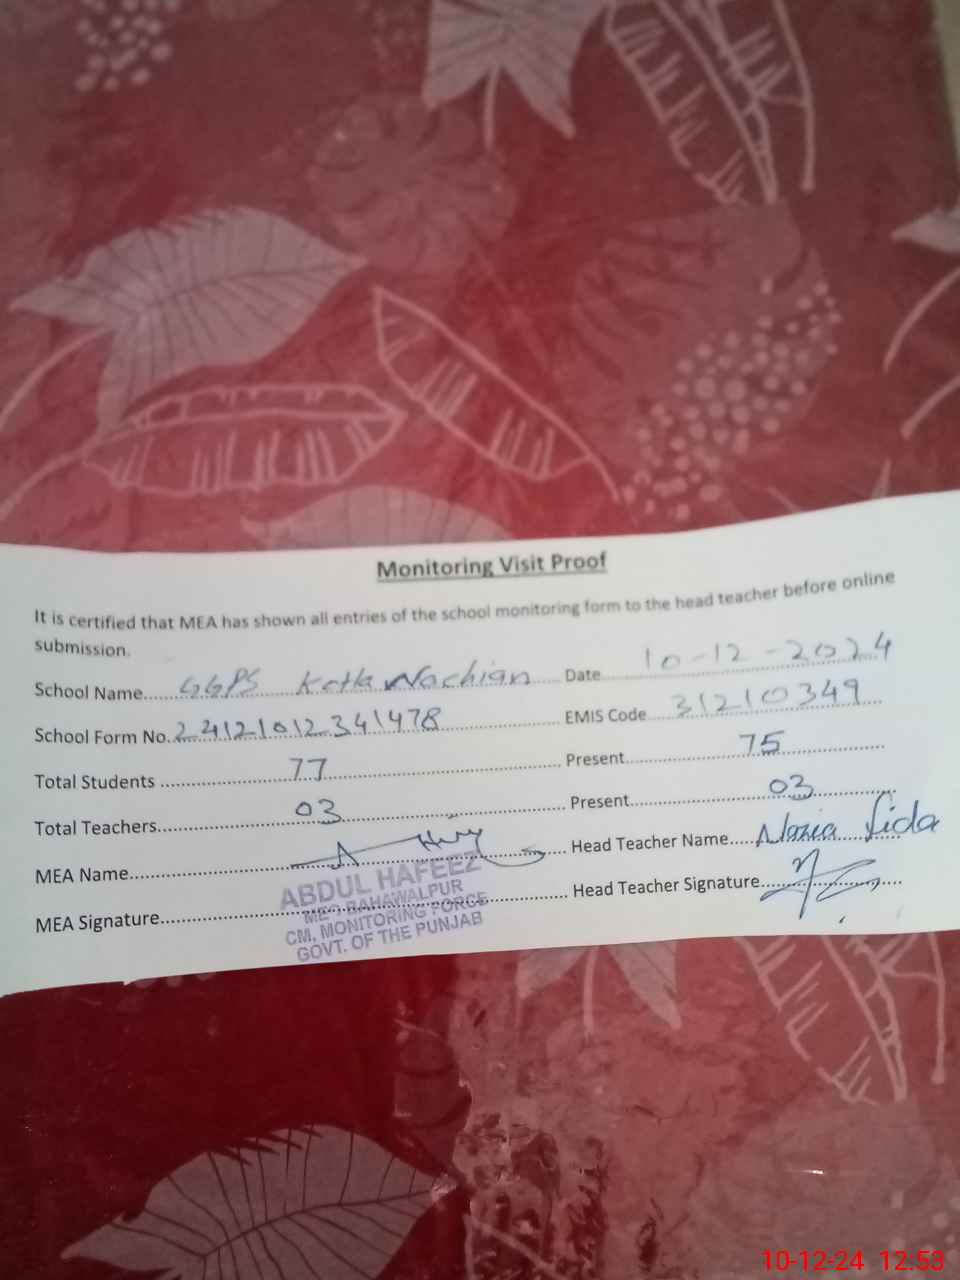 Monitoring Visit Proof
It is certified that MEA has shown all entries of the school monitoring form to the head teacher before online
submission.
School Name.....GGPS Kotla Nachian..... Date.....10-12-2024
School Form No. 24121012341478..... EMIS Code.....31210349
Total Students.....77..... Present.....75.....
Total Teachers.....03..... Present.....03.....
MEA Name..... Head Teacher Name.....Nazia Fida
MEA Signature..... Head Teacher Signature.....
ABDUL HAFEEZ
MEA BAHAWALPUR
CM, MONITORING FORCE
GOVT. OF THE PUNJAB
10-12-24 12:53